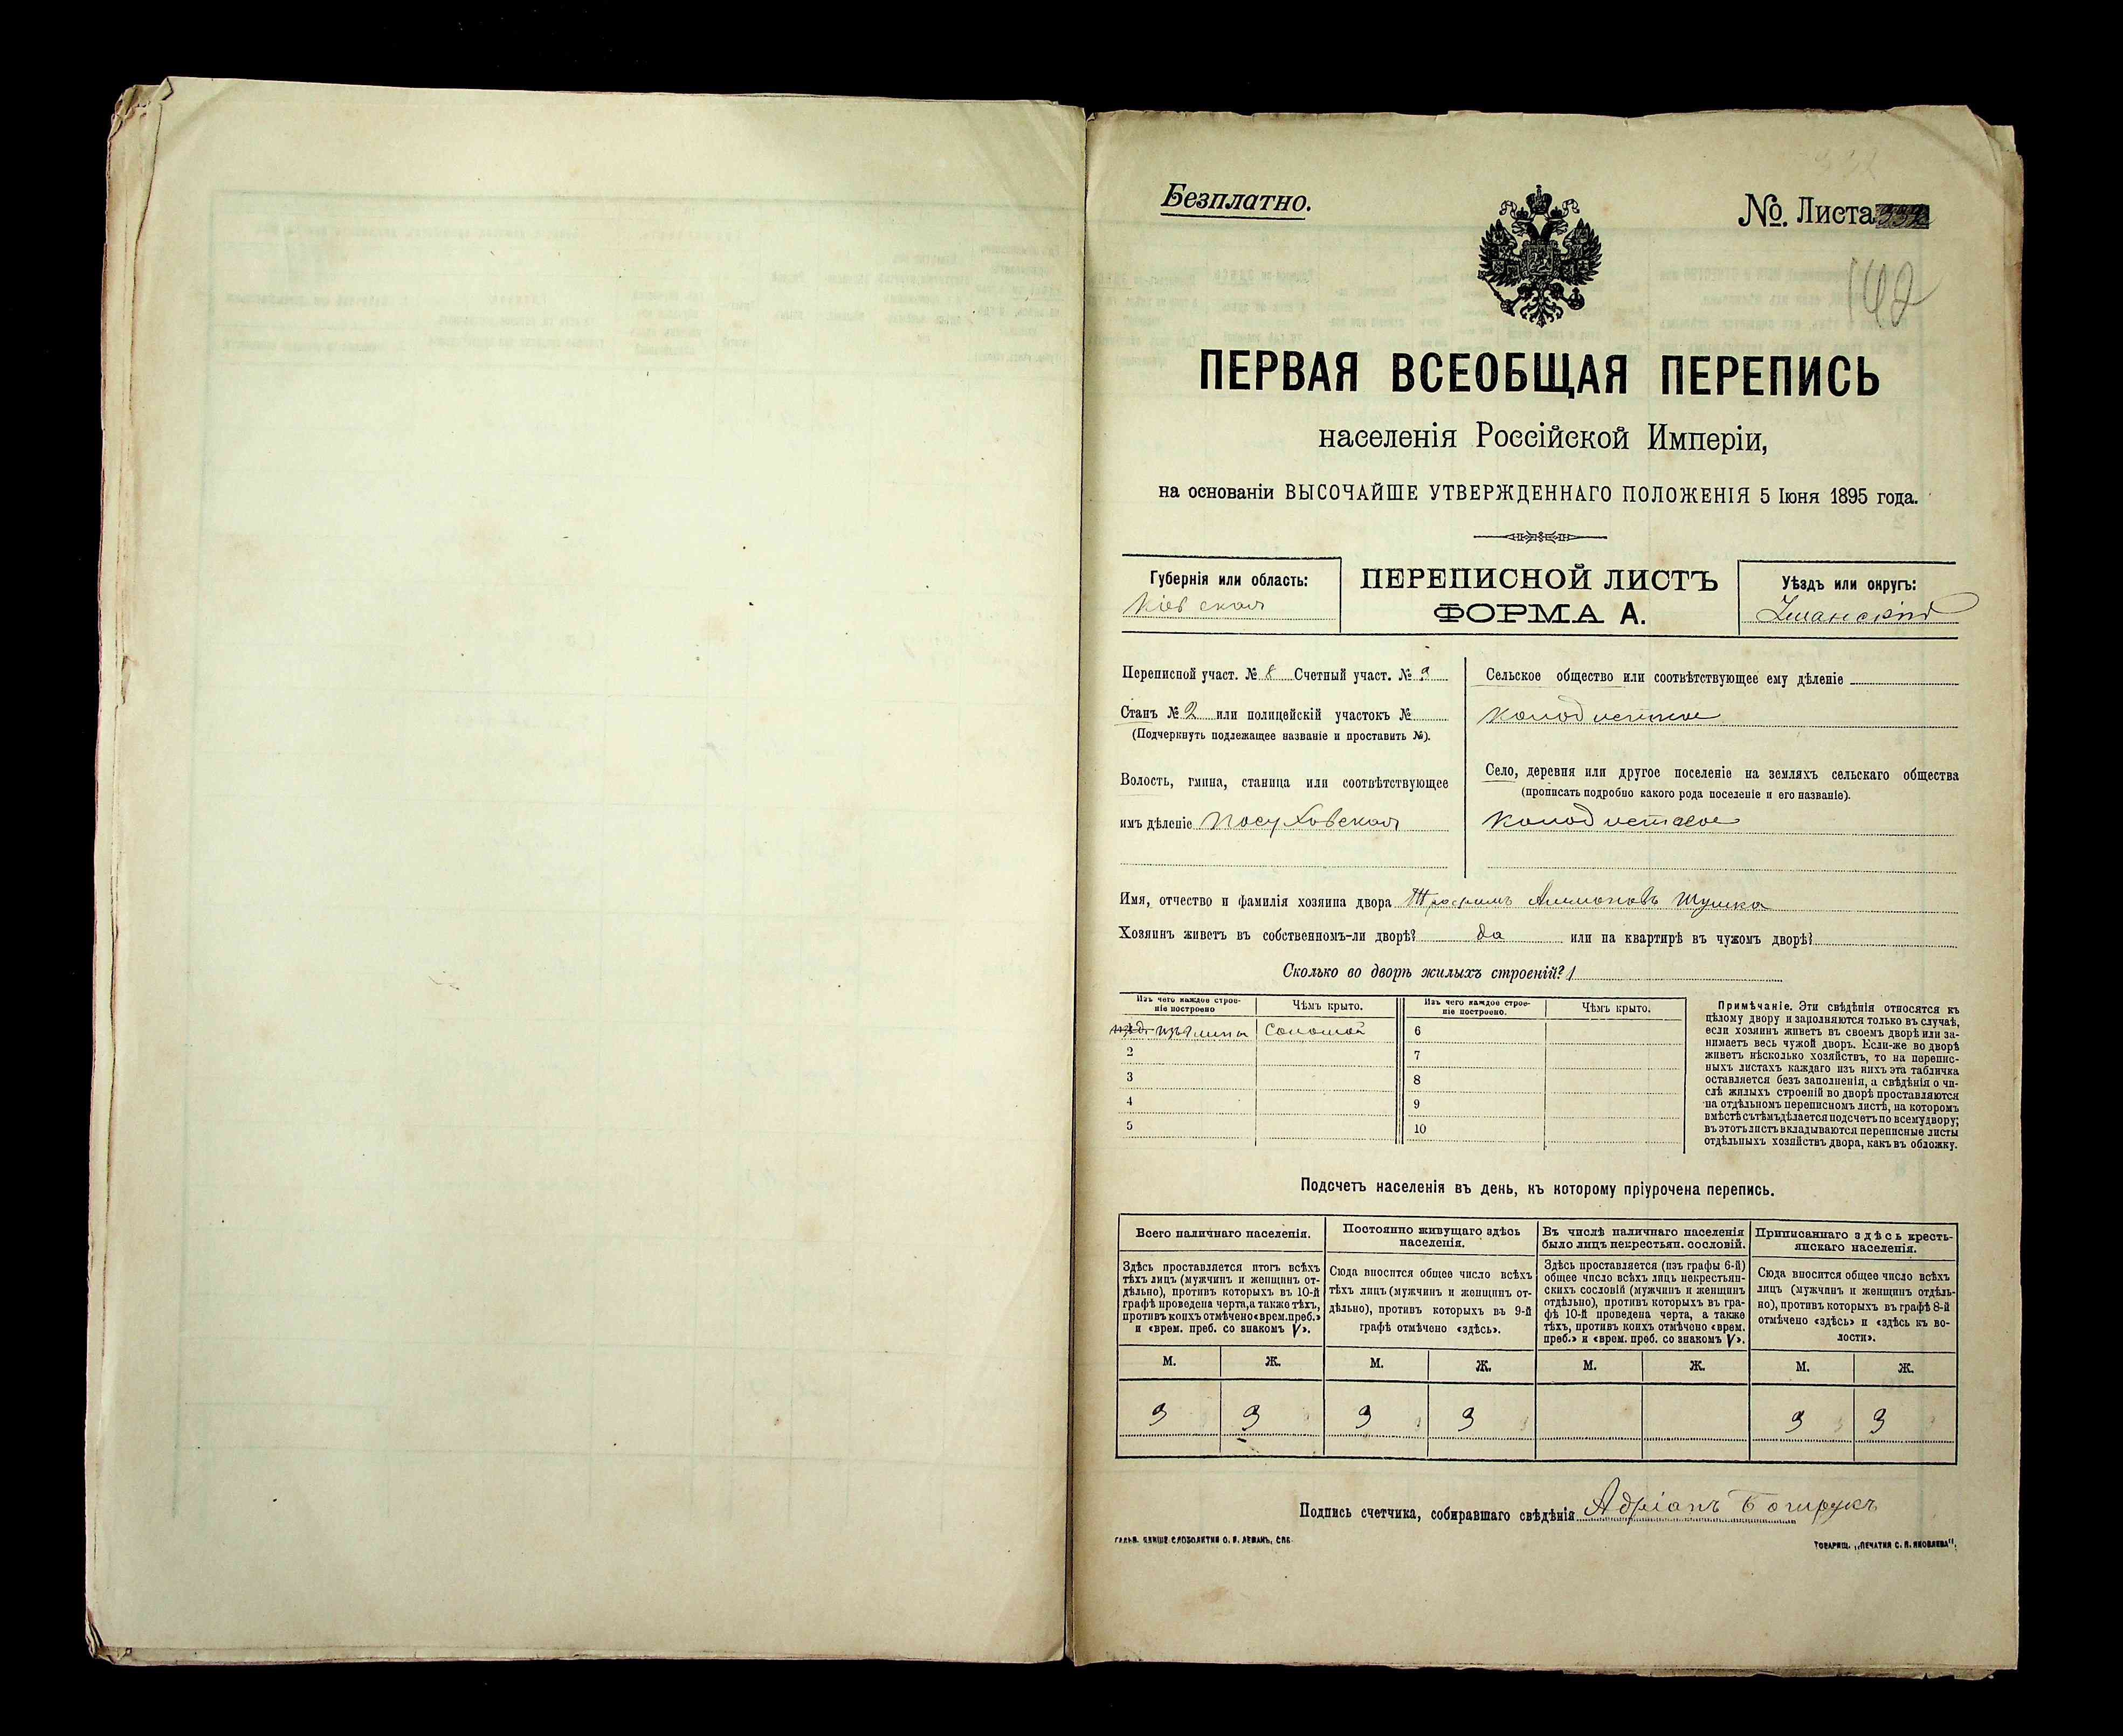 Безплатно.
№. Листа 332
142
ПЕРВАЯ ВСЕОБЩАЯ ПЕРЕПИСЬ
населенія Россійской Имперіи,
на основаніи ВЫСОЧАЙШЕ УТВЕРЖДЕННАГО ПОЛОЖЕНІЯ 5 Іюня 1895 года.
Губернія или область:
Кіевская
ПЕРЕПИСНОЙ ЛИСТЪ
ФОРМА А.
Уѣздъ или округъ:
Уманскій
Переписной участ. № 8 Счетный участ. № 9
Станъ № 2 или полицейскій участокъ №
(Подчеркнуть подлежащее названіе и проставить №).
Волость, гмина, станица или соотвѣтствующее
имъ дѣленіе Посуховская
Сельское общество или соотвѣтствующее ему дѣленіе
Колодистое
Село, деревня или другое поселеніе на земляхъ сельскаго общества
(прописать подробно какого рода поселеніе и его названіе).
Колодистое
Имя, отчество и фамилія хозяина двора Трофимъ
Хозяинъ живетъ въ собственномъ-ли дворѣ? да или на квартирѣ въ чужомъ дворѣ?
Сколько во дворѣ жилыхъ строеній? 1
Изъ чего каждое строе-
ніе построено
Чѣмъ крыто.
Изъ чего каждое строе-
ніе построено.
Чѣмъ крыто.
изъ глины Соломой
2
3
4
5
6
7
8
9
10
Примѣчаніе. Эти свѣдѣнія относятся къ
цѣлому двору и заполняются только въ случаѣ,
если хозяинъ живетъ въ своемъ дворѣ или за-
нимаетъ весь чужой дворъ. Если-же во дворѣ
живетъ нѣсколько хозяйствъ, то на перепис-
ныхъ листахъ каждаго изъ нихъ эта табличка
оставляется безъ заполненія, а свѣдѣнія о чи-
слѣ жилыхъ строеній во дворѣ проставляются
на отдѣльномъ переписномъ листѣ, на которомъ
вмѣстѣ съ тѣмъ дѣлается подсчетъ по всему двору;
въ этотъ листъ вкладываются переписные листы
отдѣльныхъ хозяйствъ двора, какъ въ обложку.
Подсчетъ населенія въ день, къ которому пріурочена перепись.
Всего наличнаго населенія.
Здѣсь проставляется итогъ всѣхъ
тѣхъ лицъ (мужчинъ и женщинъ от-
дѣльно), противъ которыхъ въ 10-й
графѣ проведена черта, а также тѣхъ,
противъ коихъ отмѣчено «врем. преб.»
и «врем. преб. со знакомъ V».
Постоянно живущаго здѣсь
населенія.
Сюда вносится общее число всѣхъ
тѣхъ лицъ (мужчинъ и женщинъ от-
дѣльно), противъ которыхъ въ 9-й
графѣ отмѣчено «здѣсь».
Въ числѣ наличнаго населенія
было лицъ некрестьян. сословій.
Здѣсь проставляется (изъ графы 6-й)
общее число всѣхъ лицъ некрестьян-
скихъ сословій (мужчинъ и женщинъ
отдѣльно), противъ которыхъ въ гра-
фѣ 10-й проведена черта, а также
тѣхъ, противъ коихъ отмѣчено «врем.
преб.» и «врем. преб. со знакомъ V».
Приписаннаго здѣсь кресть-
янскаго населенія.
Сюда вносится общее число всѣхъ
лицъ (мужчинъ и женщинъ отдѣль-
но), противъ которыхъ въ графѣ 8-й
отмѣчено «здѣсь» и «здѣсь къ во-
лости».
М. Ж. М. Ж. М. Ж. М. Ж.
3 3 3 3 3 3
Подпись счетчика, собиравшаго свѣдѣнія Адріанъ
ТОВАРИЩ. „ПЕЧАТНЯ С. П. ЯКОВЛЕВА“.